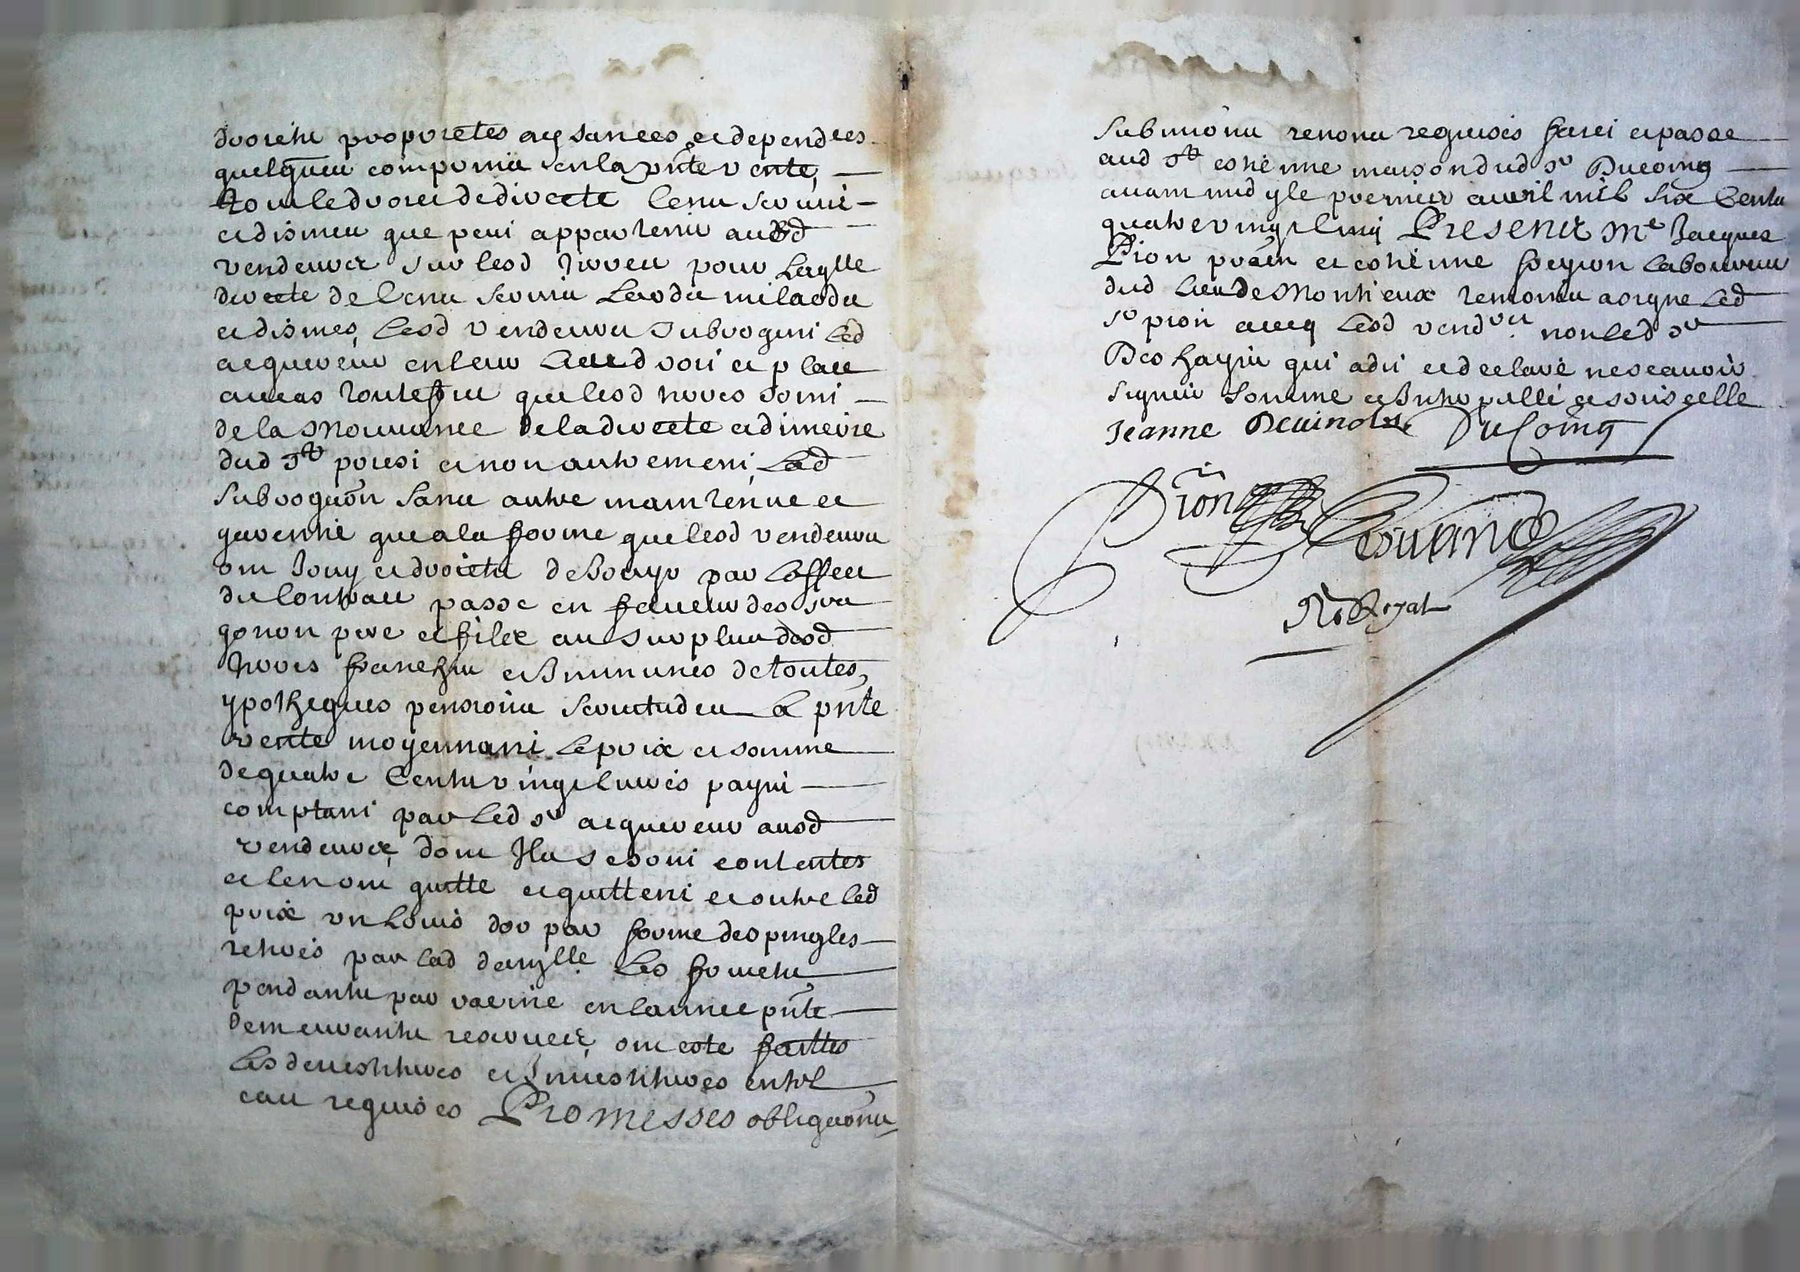 droicts proprietes aysances et dependces
quelconcu comprins en la pnte vente
Et oultre droict de directe Cens servis
et dismes que peut appartenir ausd
vendeurs sur lesd terres pour laqlle
directe de Cens servis laods milaods
et dismes lesd vendeurs subrogent led
acquereur en leur lieu droit et place
au cas toutesfois que lesd terres soint
de la Mouvance de la directe et dimerie
dud St poursi et non autrement lad
subrogaôn sans autre maintenue et
garentie que a la forme que lesd vendeurs
ont Jouy et droicts de Jouyr par leffect
du Contract passe en faveur des srs
gonon pere et filz au surplus lesd
terres franches et Immunes de toutes
ypotheques pensions servitudes La pnte
vente moyennant le prix et somme
de quatre Cents vingt livres payes
comptant par led sr acquereur ausd
vendeurs dont Ils se sont contentes
et len ont quitte et quittent et outre led
prix un Louis dor par forme despingles
retires par lad demlle Les fruicts
pendants par racine en lannee pnte
demeurants reservees ont este faittes
Les devestitures et Investitures en tel
cas requises Promesses obligaôns
submiôns renons requises faict et passe
aud St estienne maison dud sr Ducoing
avant midy le premier avril mil six Cents
quatre vingt cinq Presents Me Jacques
Pion praen et estienne peyron laboureur
dud lieu de Montieux tesmoins a signe led
sr pion avec lesd vendrs non led sr
Deshayes qui a dit et declare ne scavoir
signer somme et Interpelle et soubs celle
Jeanne Devinols Ducoing
Pion
Rozeyat